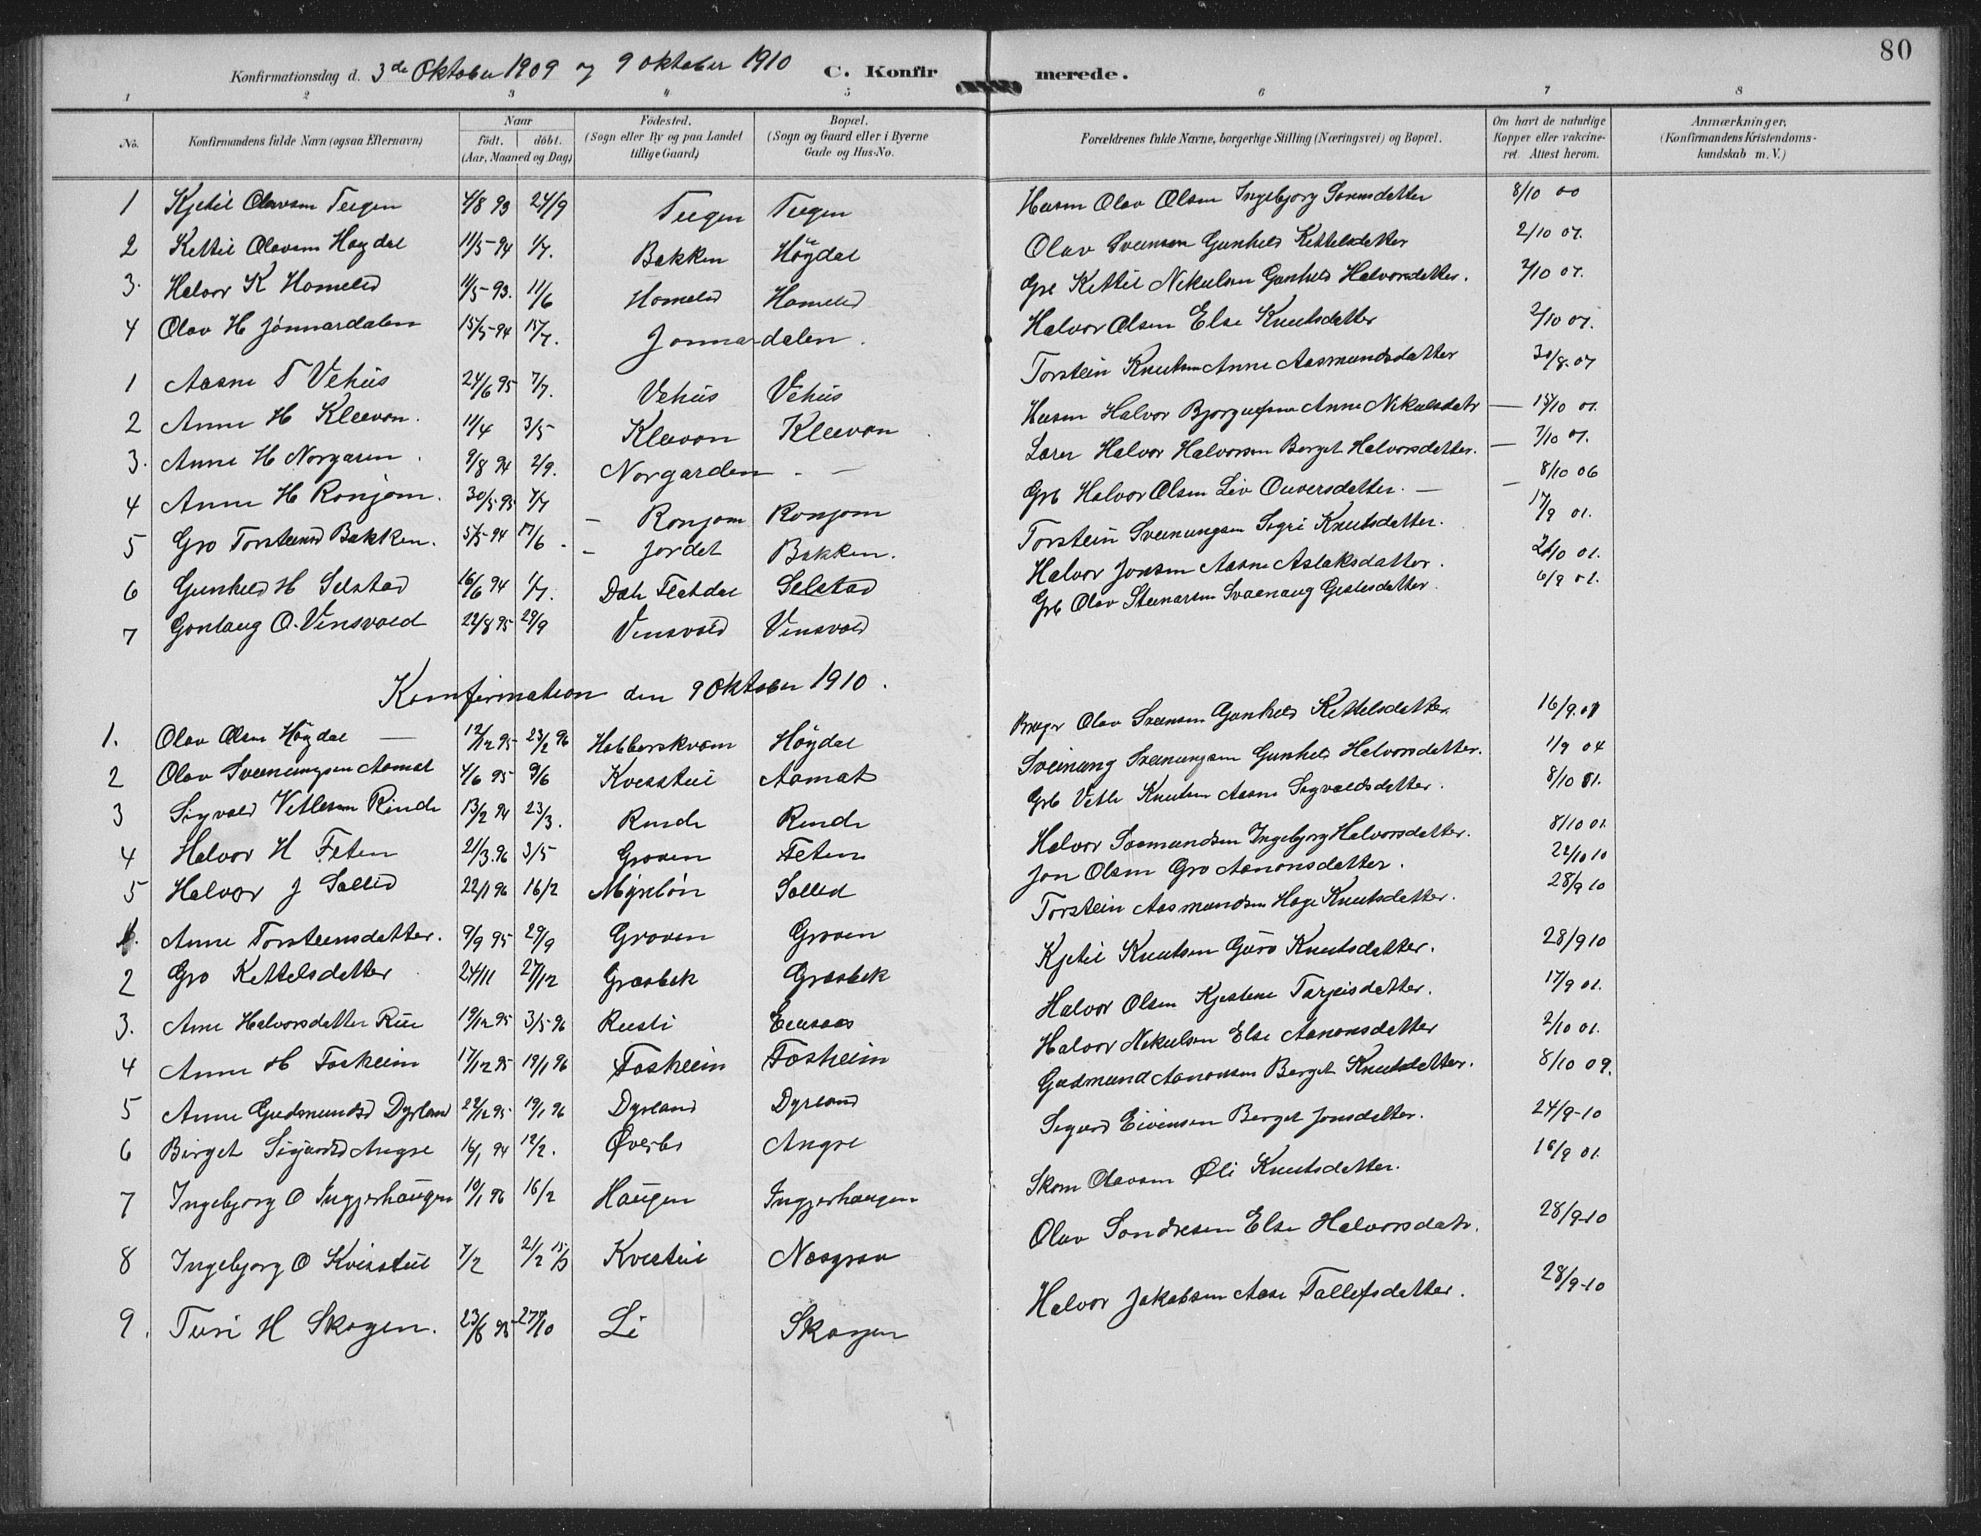 80
Konfirmationsdag d. 3de Oktober 1909 og 9 oktober 1910 C. Konfirmerede.
1 2 3 4 5 6 7 8
No. Konfirmandens fulde Navn (ogsaa Efternavn) Naar födt. döbt. (Aar, Maaned og Dag) Födested. (Sogn eller By og paa Landet tillige Gaard) Bopæl. (Sogn og Gaard eller i Byerne Gade og Hus-No. Forældrenes fulde Navne, borgerlige Stilling (Næringsvei) og Bopæl. Om havt de naturlige Kopper eller vakcineret. Attest herom. Anmærkninger, (Konfirmandens Kristendomskundskab m. V.)
1 Kjetil Olavsen Teigen 4/8 93 24/9 Teigen Teigen Husm Olav Olsen Ingebjorg 8/10 00
2 Kettil Olavsen Høydal 11/5-94 1/7. Bakken Höydal Olav Sveinsen Gunhild Kettelsdatter 2/10 07.
3. Halvor K Homelid 11/5-93. 11/6 Homelid Homelid Kettil Nikulsen Gunhild Halvorsdatter. 2/10 07.
4 Olav H Jönnardalen 15/5-94 15/7. Jonnardalen. Halvor Olsen Else Knutsdatter 2/10 07.
1 Aasne T Vehus 24/6 95 7/7. Vehus Vehus Torstein Knutsen Anne Aasmundsdatter 30/8-07
2 Anne H Kleevon. 11/4 3/5 Kleevon Kleevon Husm Halvor Bjorgulfsen Anne Nikulsdatr — 15/10 01.
3. Anne H Norgaren. 9/8 94 2/9. Norgarden - — Lærer Halvor Halvorsen Berget Halvorsdatter. — 7/10 07.
4 Anne H Ronjom. 30/5-95 7/7 - Ronjom Ronjom Grb Halvor Olsen Liv Ouversdatter. — 8/10 06
5 Gro Torsteinsd Bakken. 5/5-94 17/6 - - Jordet Bakken. Torstein Sveinungsen Sigri Knutsdatter. 17/9 01.
6 Gunhild H Selstad 16/6 94 1/7. Flatdal Selstad Halvor Jonsen Aasne Aslaksdatter. 01.
7 Gonlaug O. Vinsvold 22/8 95 29/9 Vinsvold Vinsvold Grb Olav Steinarsen Svaenaug 6/9 01.
Konfirmation den 9 Oktober 1910.
1. Olav Olsen Höydal — 12/12 95 23/2 96 Habberskvam Höydal Olav Sveinsen Gunhild Kettelsdatter 16/9.01
2 Olav Sveinungsen Aamat 4/6 95 9/6 Kvisstul Aamat Sveinung Sveinungsen Gunhild Halvorsdatter. 1/9 04
3 Sigvald Vetlesen Rinde 13/2 94 23/3. Rinde Rinde Grb Vetle Knutsen Aasne Sigvaldsdatter. 8/10 01.
4 Halvor H Feten 21/3.96 3/5 Groven Feten Halvor Saamundsen Ingebjorg Halvorsdatter. 8/10 01
5 Halvor J Solled 22/1 96 16/2 Mynlön Solled Jon Olsen Gro Aanonsdatter. 22/10 10
1. Anne Torsteinsdatter. 9/9 95 29/9 Groven Groven Torstein Aasmundsen Hage Knutsdatter. 28/9 10
2 Gro Kettelsdatter 24/11 27/12 Græsbek Græsbek Kjetil Knutsen Guro Knutsdatter. 28/9 10
3. Ane Halvorsdatter Rue 19/12 95 3/5 96 Rusti Halvor Olsen Kjestine Tarjeisdatter. 17/9 01.
4 Anne H Foskeim 17/12 95 19/1 96 Foskeim Foskeim Halvor Nikulsen Else Aanonsdatter 2/10 01.
5 Anne Gudmundsd Dyrland 22/12 95 19/1 96 Dyrland Dyrland Gudmund Aanonsen Berget Knutsdatter. 8/10 09.
6 Birget Sigurdsd Angre 16/1 94 12/2. Øverbö Angre Sigurd Eivensen Berget Jonsdatter. 24/9-10
7 Ingebjorg O Ingjerhaugen 10/1 96 16/2 Haugen Ingjerhaugen Skom Olavsen Øli Knutsdatter. 16/9 01.
8 Ingebjorg O Kvisstul 7/2 Kvistul Nosgrav Olav Sondresen Else Halvorsdatr. 28/9-10
9. Turi H Skogen. 23/8 95 27/10 Li Skogen Halvor Jakobsen Aase Tallefsdatter. 28/9-10